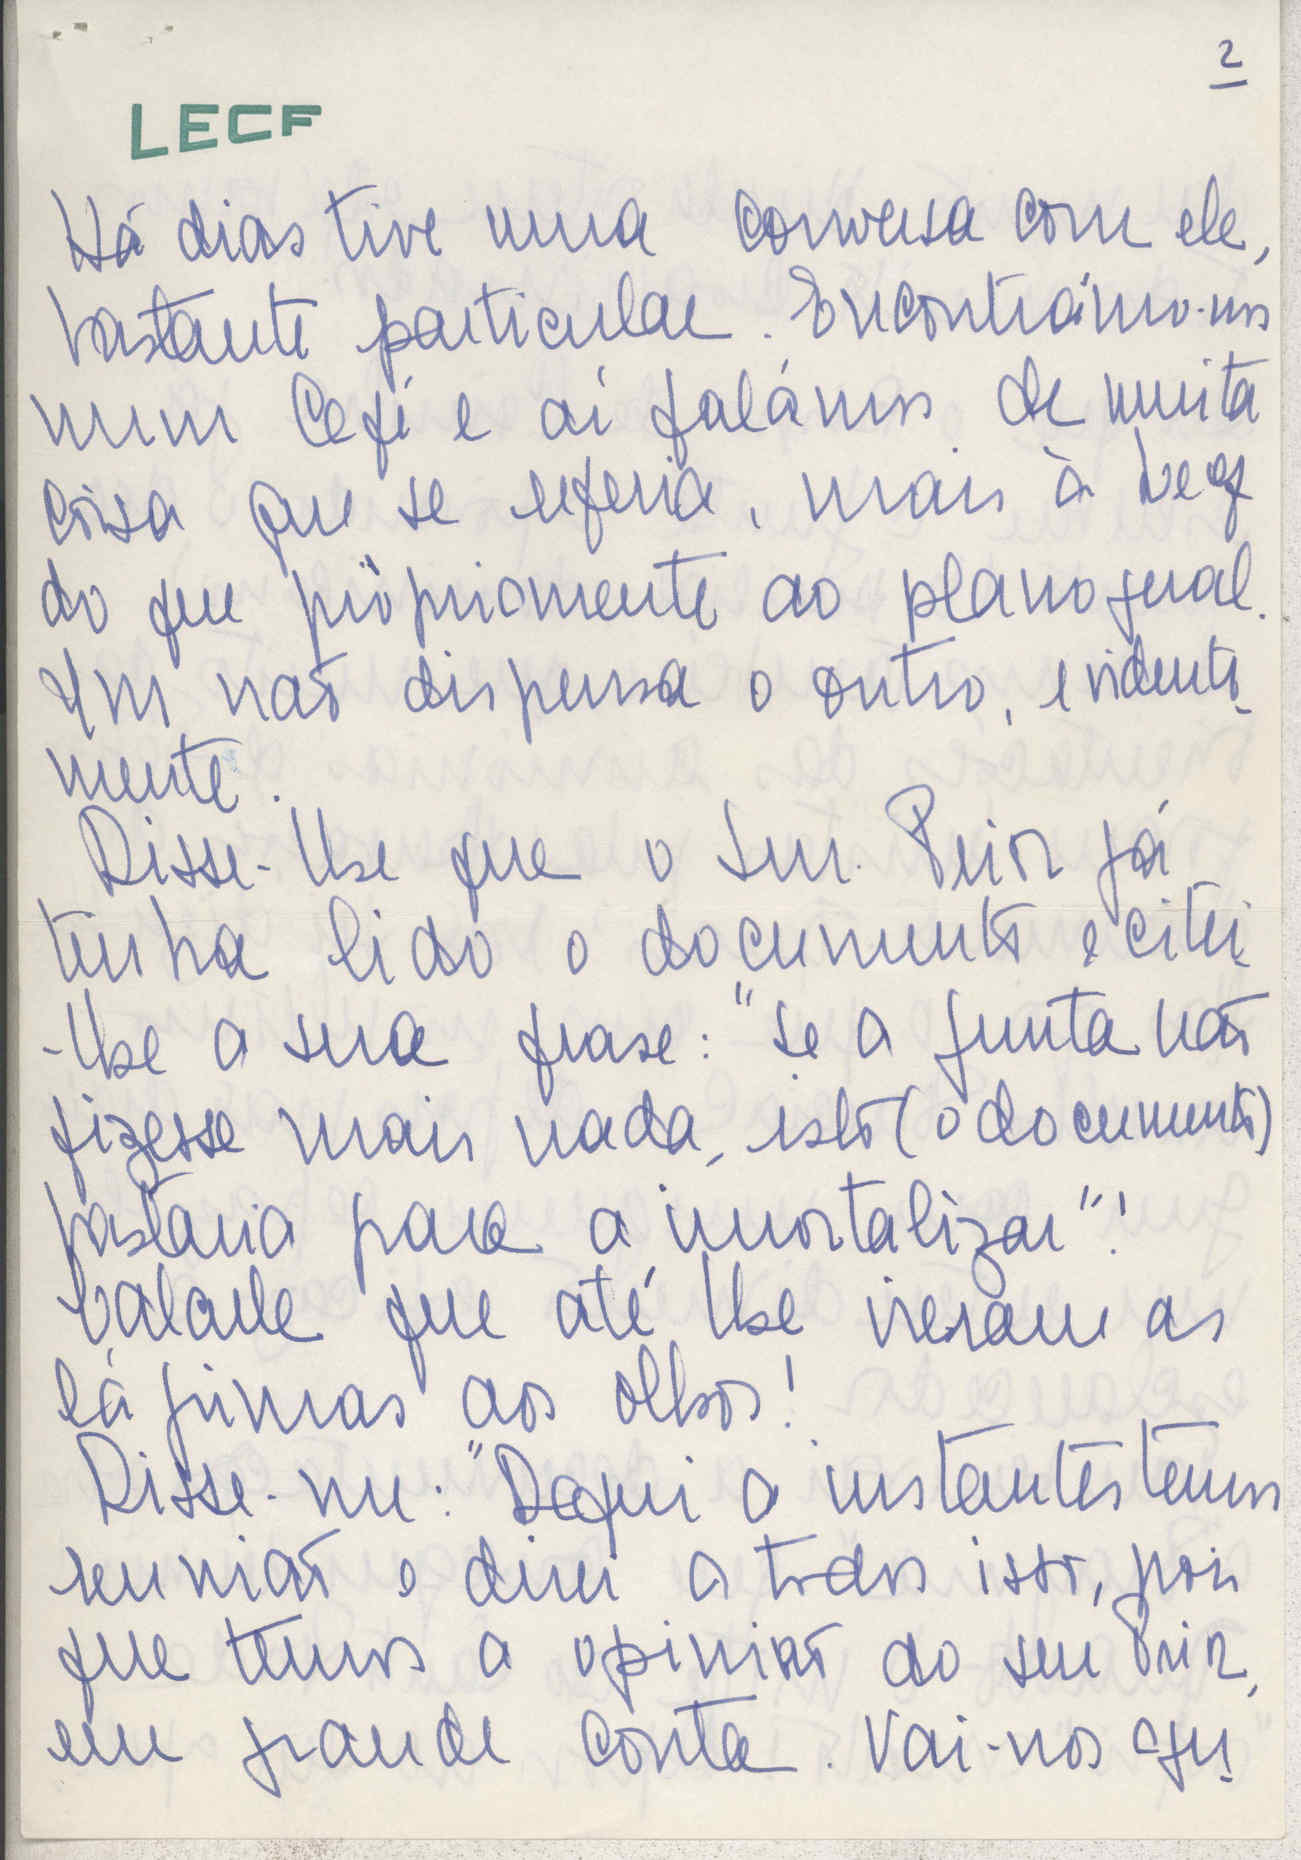 2
LECF
Há dias tive uma conversa com ele,
bastante particular. Encontrámo-nos
num Café e aí falámos de muita
coisa que se referia, mais à
do que pròpriamente ao plano geral.
Um não dispensa o outro, evidente-
mente.
Disse-lhe que o Snr. Prior já
tinha lido o documento e citei-
-lhe a sua frase: "se a Junta não
fizesse mais nada, isto (o documento)
bastaria para a imortalizar"!
que até lhe vieram as
lágrimas aos olhos!
Disse-me: "Daqui a instantes temos
reunião e direi a todos isso, pois
que temos a opinião do seu Prior,
em grande conta. Vai-nos aju-